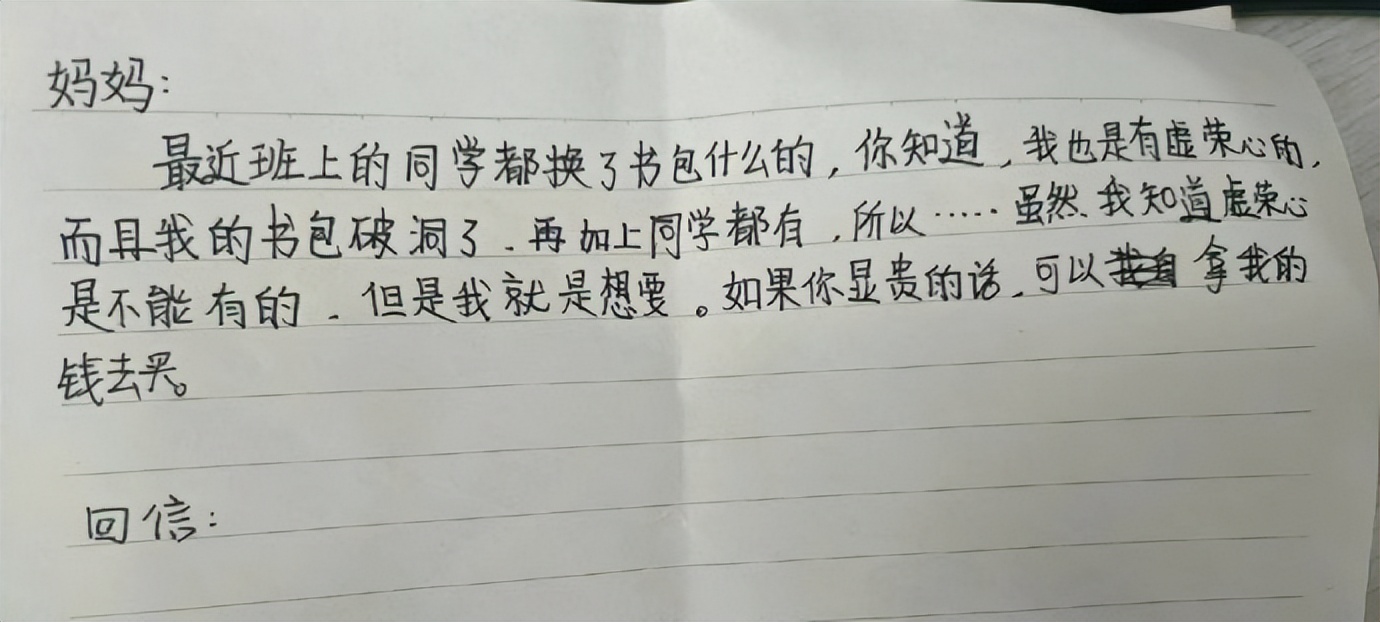 妈妈：
最近班上的同学都换了书包什么的，你知道，我也是有虚荣心的，
而且我的书包破洞了、再加上同学都有，所以……虽然、我知道虚荣心
是不能有的、但是我就是想要。如果你显贵的话、可以拿我的
钱去买。
回信：